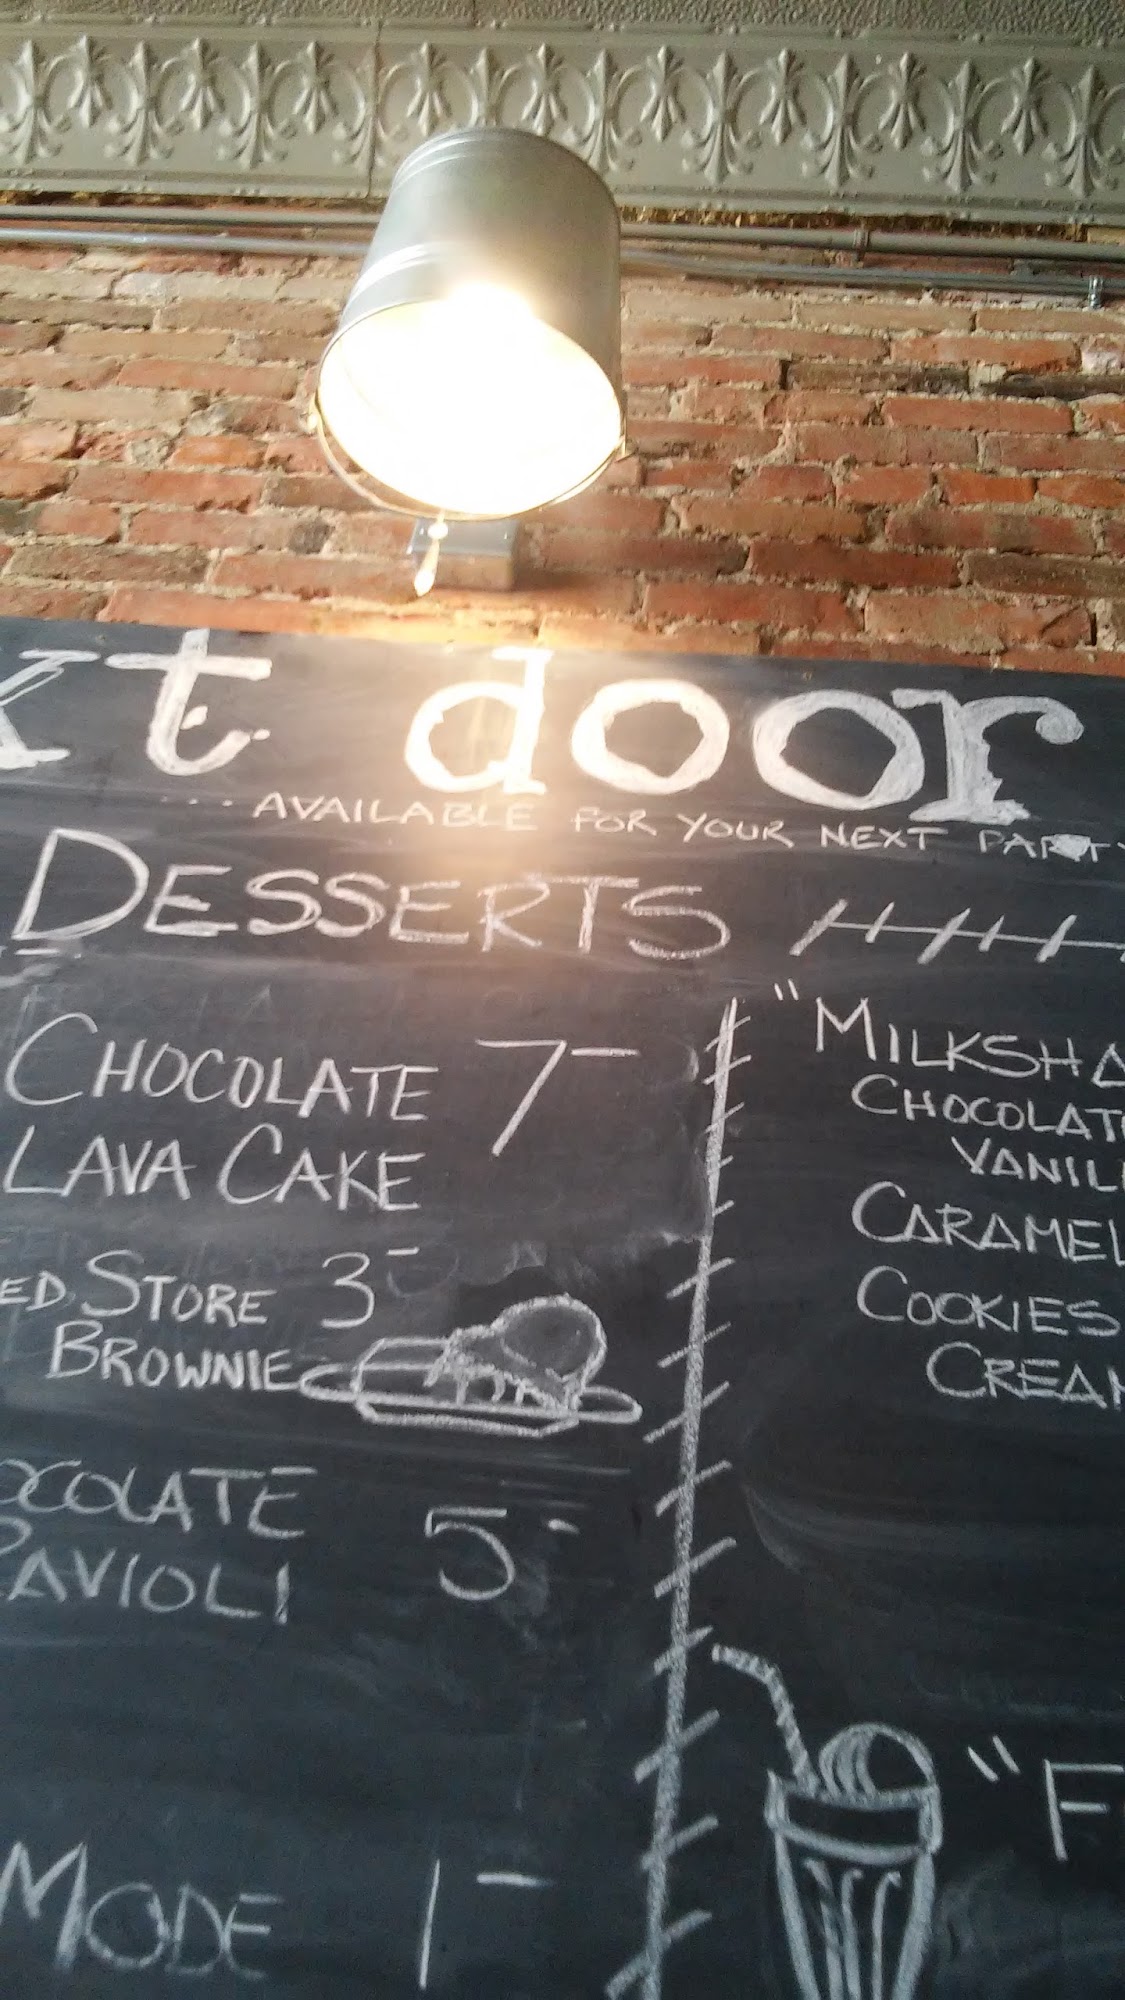 xt door
....AVAILABLE FOR YOUR NEXT PARTY
DESSERTS
CHOCOLATE 7-
LAVA CAKE
ED STORE 3-
BROWNIE
OCOLATE
RAVIOLI 5-
MODE 1-
"MILKSHA
CHOCOLATE
VANIL
CARAMEL
COOKIES
CREAM
"F